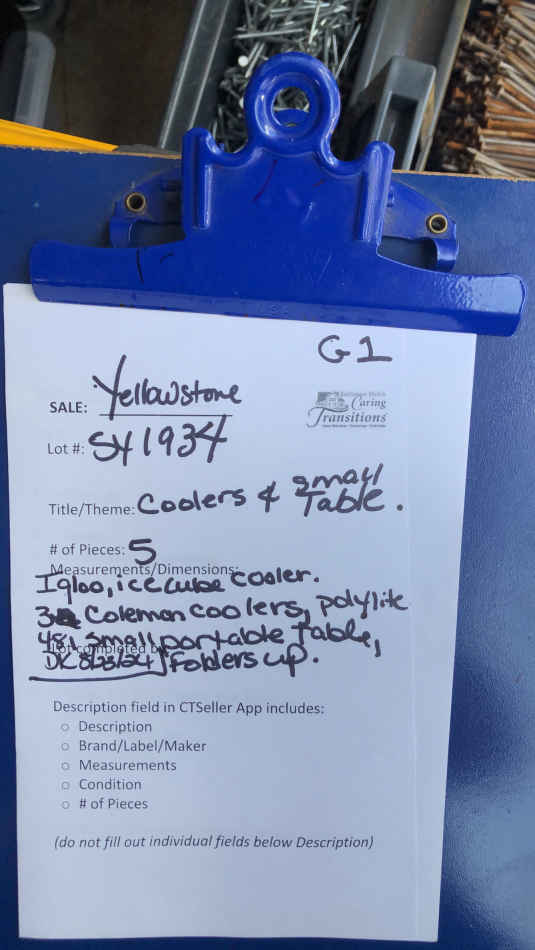 G1
SALE: Yellowstone
Caring
Transitions
Lot #: SY1934
Title/Theme: Coolers & Small Table.
# of Pieces: 5
Measurements/Dimensions:
Igloo, ice cube cooler.
3 Coleman coolers, polylite
48, 1 small portable table,
Lot completed by
DK 8/23/24 Folders up.
Description field in CTSeller App includes:
○ Description
○ Brand/Label/Maker
○ Measurements
○ Condition
○ # of Pieces
(do not fill out individual fields below Description)